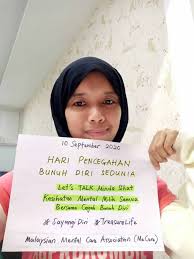 10 September 2020
HARI PENCEGAHAN
BUNUH DIRI SEDUNIA
Let's TALK Minda Sihat
Kesihatan Mental Milik Semua
Bersama Cegah Bunuh Diri
# Sayangi Diri # TreasureLife
Malaysian Mental Care Association (MeCare)